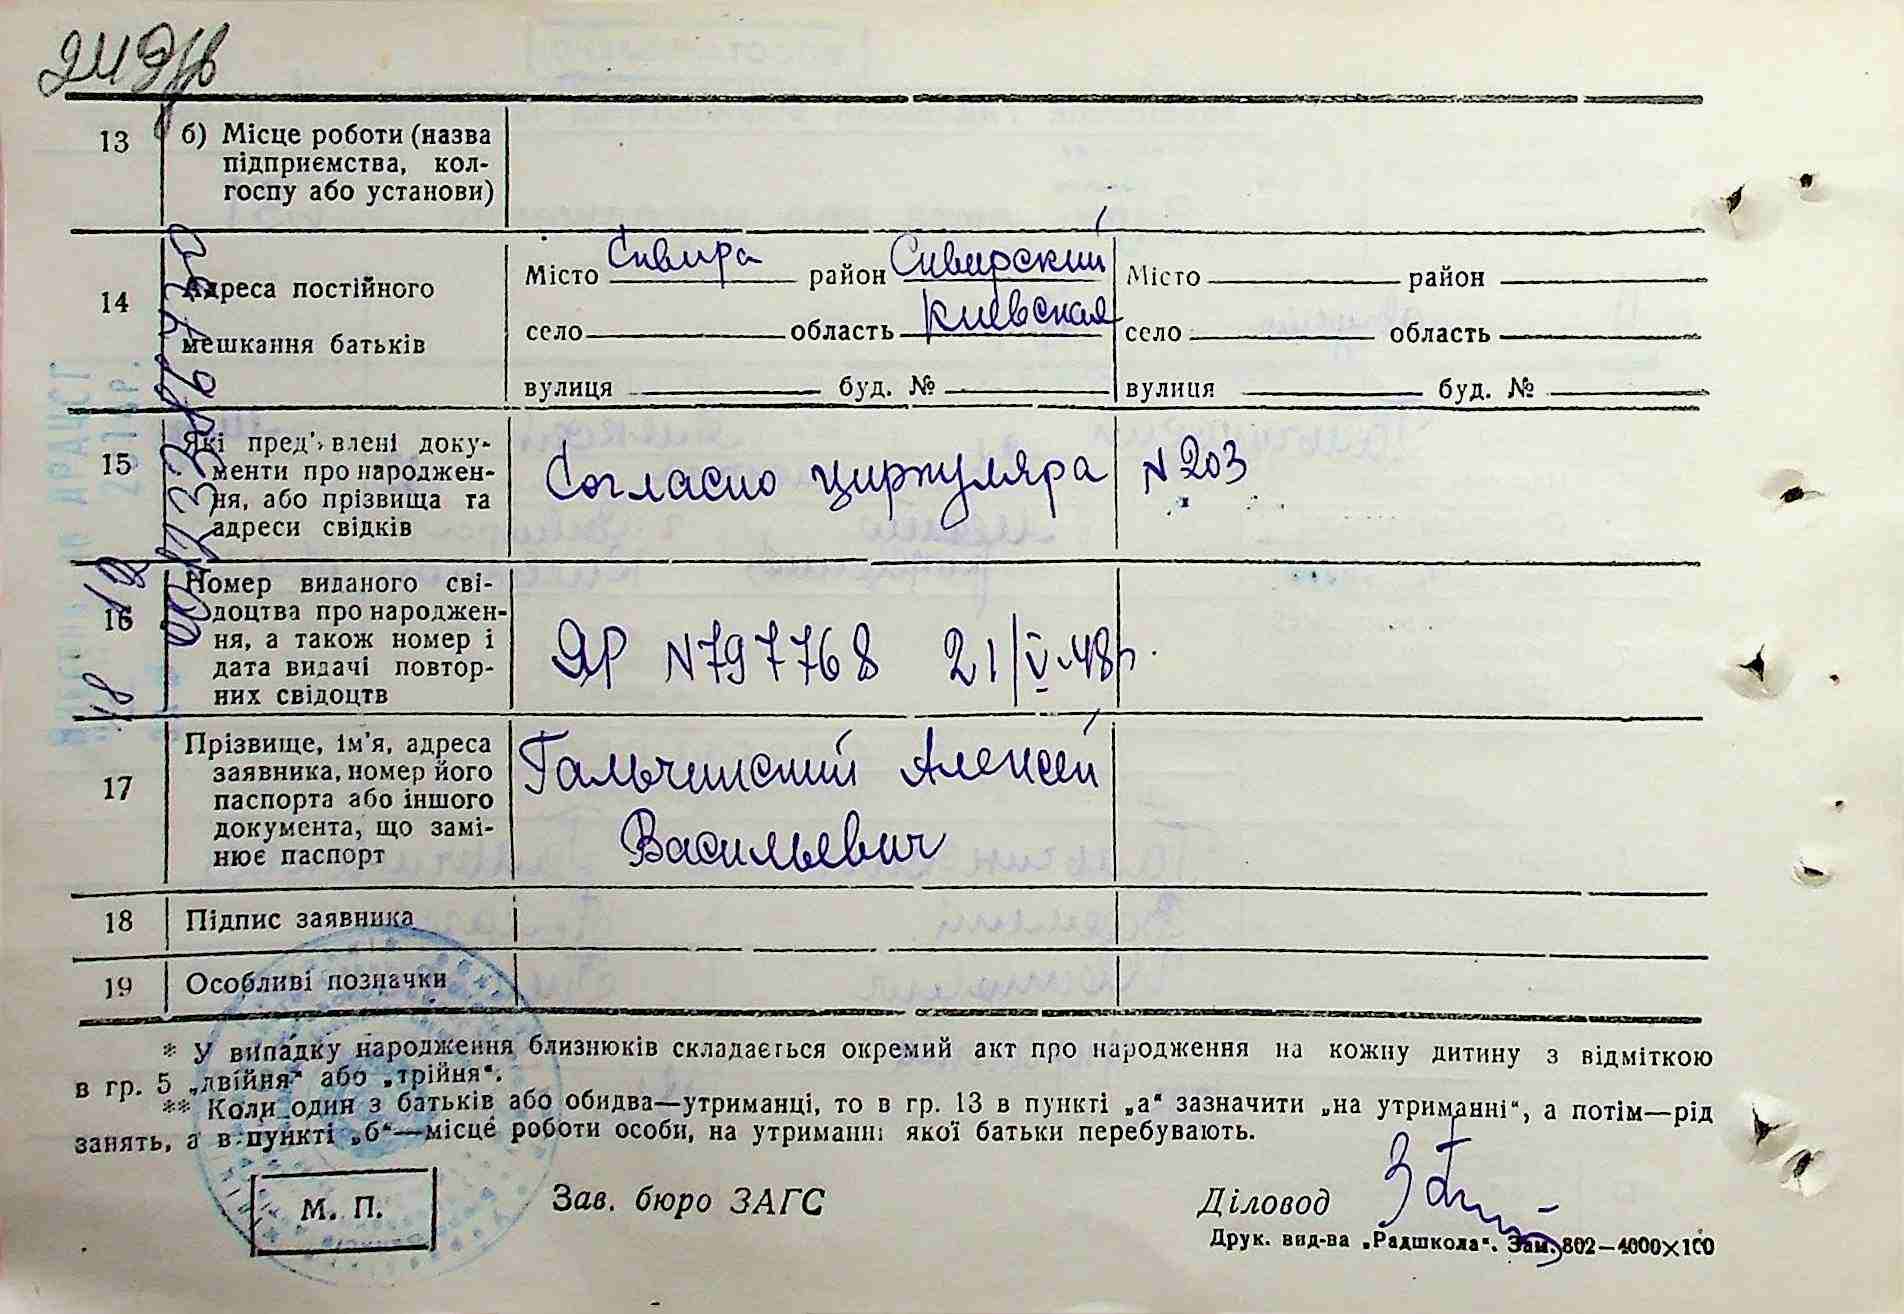 13
б) Місце роботи (назва
підприємства, кол-
госпу або установи)
14
Адреса постійного
мешкання батьків
Місто Сквира район Сквирский
село область Киевская
вулиця буд. №
Місто район
село область
вулиця буд. №
15
Які пред'явлені доку-
менти про народжен-
ня, або прізвища та
адреси свідків
Согласно циркуляра N 203
16
Номер виданого сві-
доцтва про народжен-
ня, а також номер і
дата видачі повтор-
них свідоцтв
ЯР N797768 21/V.48р.
17
Прізвище, ім'я, адреса
заявника, номер його
паспорта або іншого
документа, що замі-
нює паспорт
Гальчинский Алексей
Васильевич
18
Підпис заявника
19
Особливі позначки
* У випадку народження близнюків складається окремий акт про народження на кожну дитину з відміткою
в гр. 5 „двійня“ або „трійня“.
** Коли один з батьків або обидва—утриманці, то в гр. 13 в пункті „а“ зазначити „на утриманні“, а потім—рід
занять, а в пункті „б“—місце роботи особи, на утриманні якої батьки перебувають.
М. П.
Зав. бюро ЗАГС
Діловод
Друк. вид-ва „Радшкола“. Зам. 802—4000×100